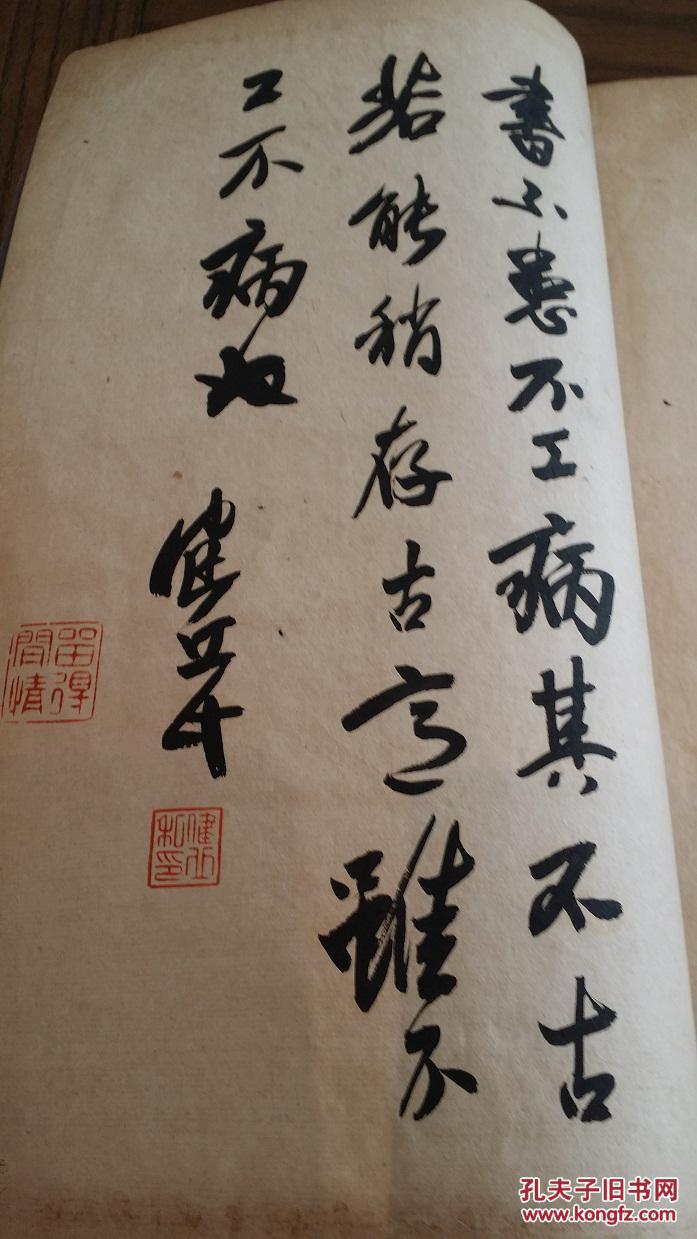 書不患不工病其不古
若能稍存古意雖不
工不病也
健丘
健丘私印
留得閒情
孔夫子旧书网
www.kongfz.com